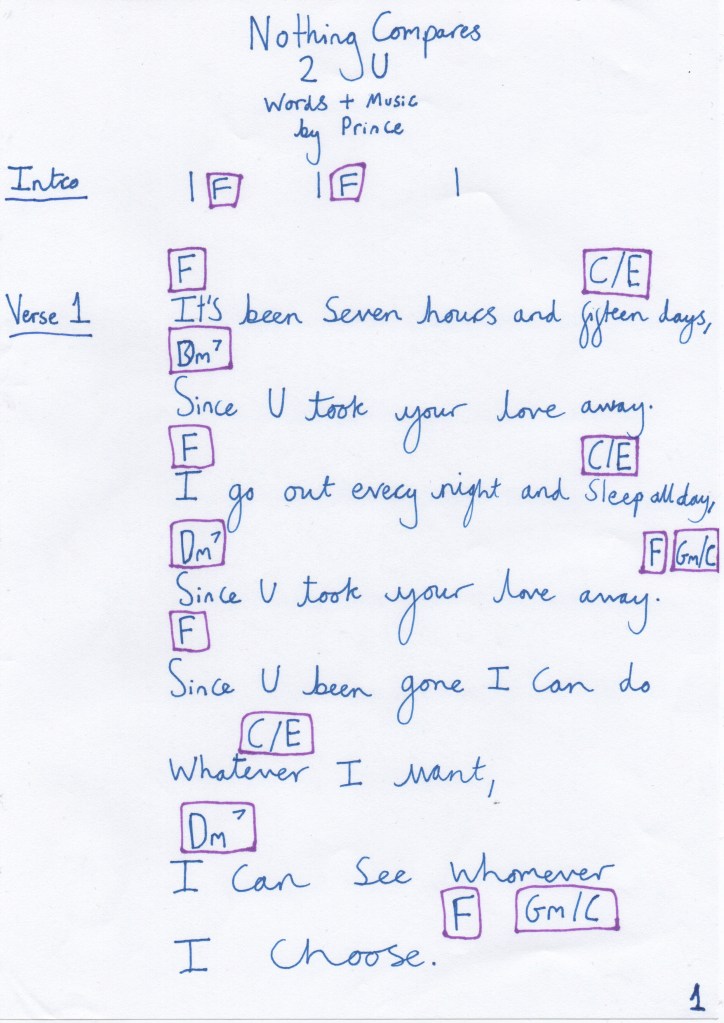 Nothing Compares
2 U
Words + Music
by Prince
Intro | F | F |
F C/E
Verse 1 It's been Seven hours and fifteen days,
Dm7
Since U took your love away.
F C/E
I go out every night and Sleep all day,
Dm7 F Gm/C
Since U took your love away.
F
Since U been gone I can do
C/E
Whatever I want,
Dm7
I can see whomever
F Gm/C
I choose.
1